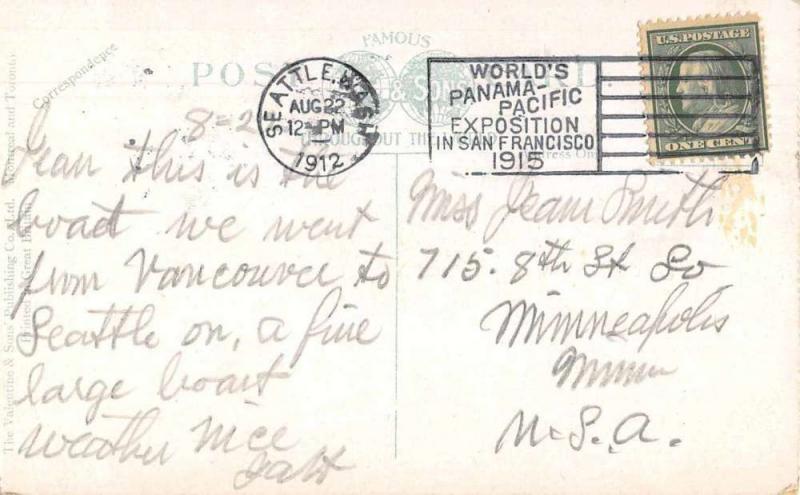 Correspondence
FAMOUS
POST
& SONS
THROUGHOUT THE
SEATTLE, WASH
AUG 22
12-PM
1912
WORLD'S
PANAMA-
PACIFIC
EXPOSITION
IN SAN FRANCISCO
1915
U.S. POSTAGE
ONE CENT
8-2
Jean this is the
boat we went
from Vancouver to
Seattle on, a fine
large boat
weather nice
Miss Jean Smith
715. 8th St So
Minneapolis
Minn
U.S.A.
The Valentine & Sons' Publishing Co., Ltd. Montreal and Toronto
Printed in Great Britain